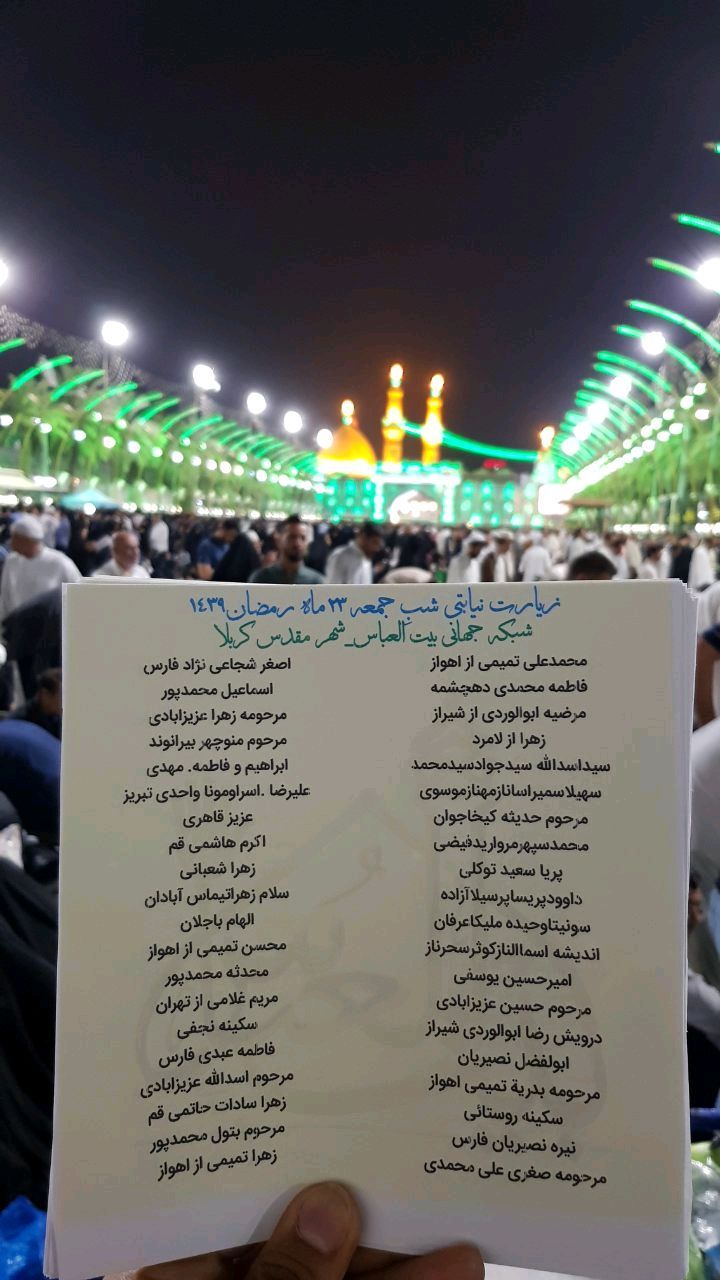 زیارت نیابتی شب جمعه ۲۳ ماه رمضان ۱۴۳۹
شبکه جهانی بیت العباس_شهر مقدس کربلا
محمدعلی تمیمی از اهواز
فاطمه محمدی دهچشمه
مرضیه ابوالوردی از شیراز
زهرا از لامرد
سیداسدالله سیدجوادسیدمحمد
سهیلاسمیراسانازمهنازموسوی
مرحوم حدیثه کیخاجوان
محمدسپهرمرواریدفیضی
پریا سعید توکلی
داوودپریساپرسیلاآزاده
سونیتاوحیده ملیکاعرفان
اندیشه اسماالنازکوثرسحرناز
امیرحسین یوسفی
مرحوم حسین عزیزابادی
درویش رضا ابوالوردی شیراز
ابولفضل نصیریان
مرحومه بدریة تمیمی اهواز
سکینه روستائی
نیره نصیریان فارس
مرحومه صغری علی محمدی
اصغر شجاعی نژاد فارس
اسماعیل محمدپور
مرحومه زهرا عزیزابادی
مرحوم منوچهر بیرانوند
ابراهیم و فاطمه. مهدی
علیرضا .اسراومونا واحدی تبریز
عزیز قاهری
اکرم هاشمی قم
زهرا شعبانی
سلام زهراتیماس آبادان
الهام باجلان
محسن تمیمی از اهواز
محدثه محمدپور
مریم غلامی از تهران
سکینه نجفی
فاطمه عبدی فارس
مرحوم اسدالله عزیزابادی
زهرا سادات حاتمی قم
مرحوم بتول محمدپور
زهرا تمیمی از اهواز